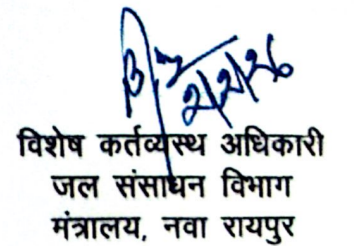 विशेष कर्तव्यस्थ अधिकारी
जल संसाधन विभाग
मंत्रालय, नवा रायपुर